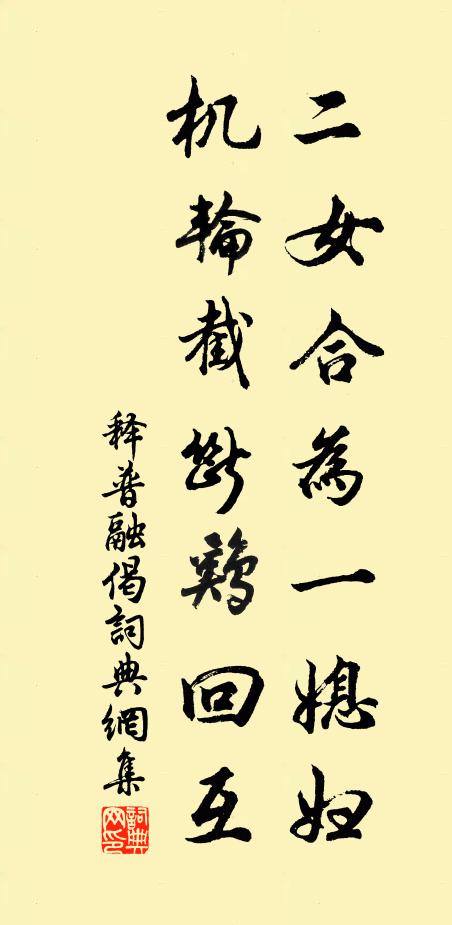 二女合為一媳妇
机輪截斷鷄回互
释普融偈詞典網集
詞典網印